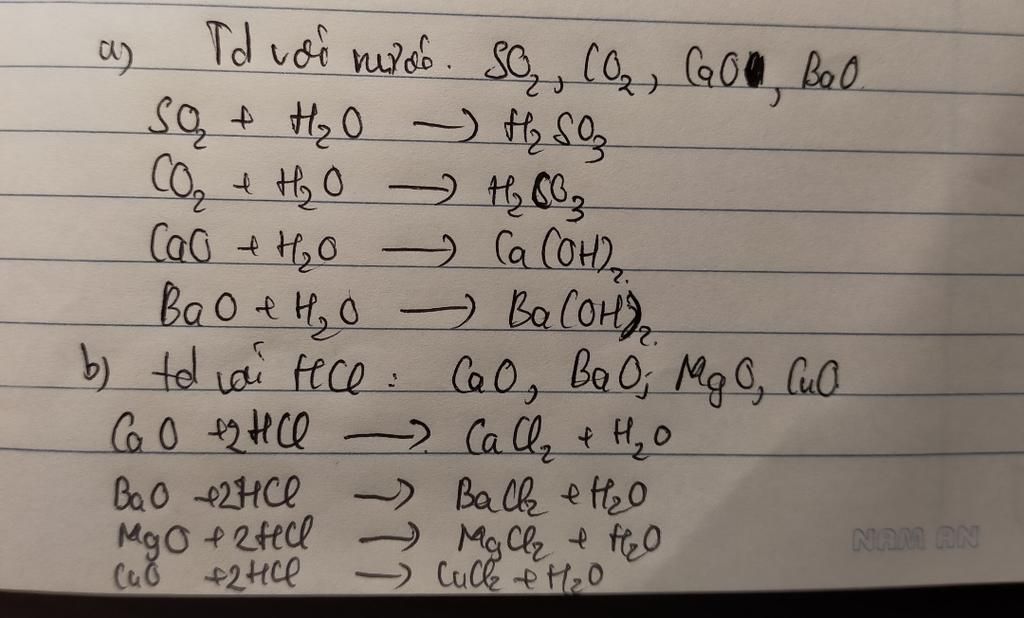 a) Td với nước. SO₂, CO₂, CaO, BaO.
SO₂ + H₂O → H₂SO₃
CO₂ + H₂O → H₂CO₃
CaO + H₂O → Ca(OH)₂.
BaO + H₂O → Ba(OH)₂.
b) td với HCl : CaO, BaO; MgO, CuO
CaO +2HCl → CaCl₂ + H₂O
BaO +2HCl → BaCl₂ + H₂O
MgO + 2HCl → MgCl₂ + H₂O
CuO +2HCl → CuCl₂ + H₂O
NAM AN